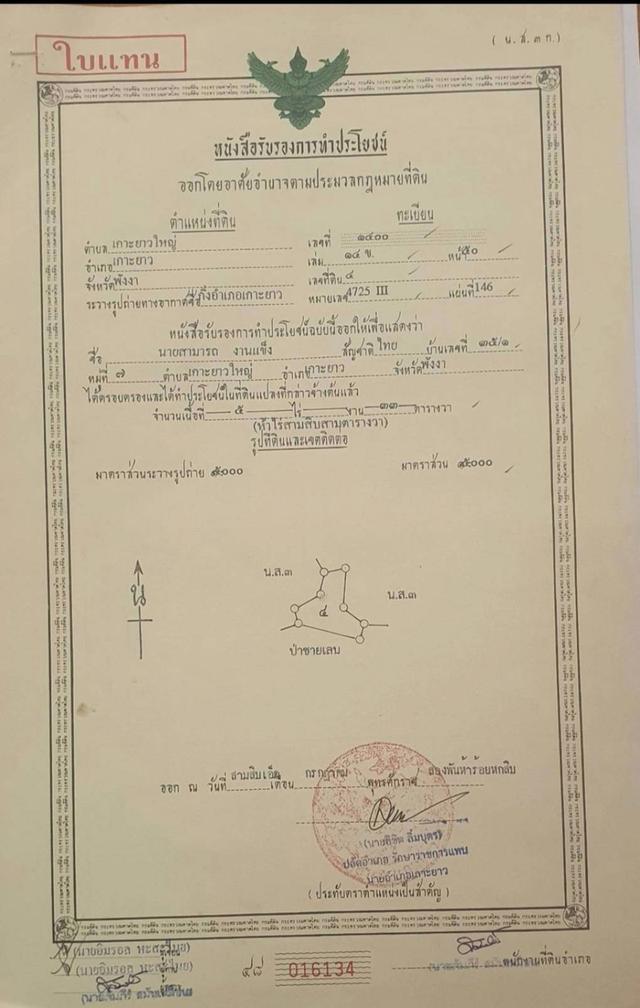 ใบแทน
( น.ส.๓ ก.)
หนังสือรับรองการทำประโยชน์
ออกโดยอาศัยอำนาจตามประมวลกฎหมายที่ดิน
ตำแหน่งที่ดิน
ทะเบียน
ตำบล เกาะยาวใหญ่ เลขที่ ๑๔๐๐
อำเภอ เกาะยาว เล่ม ๑๔ ข. หน้า ๕๐
จังหวัด พังงา เลขที่ดิน ๔
ระวางรูปถ่ายทางอากาศชื่อ กิ่งอำเภอเกาะยาว หมายเลข 4725 III แผ่นที่ 146
หนังสือรับรองการทำประโยชน์ฉบับนี้ออกให้เพื่อแสดงว่า
ชื่อ นายสามารถ งานแข็ง สัญชาติ ไทย บ้านเลขที่ ๓๕/๑
หมู่ที่ ๗ ตำบล เกาะยาวใหญ่ อำเภอ เกาะยาว จังหวัด พังงา
ได้ครอบครองและได้ทำประโยชน์ในที่ดินแปลงที่กล่าวข้างต้นแล้ว
จำนวนเนื้อที่ ๕ ไร่ งาน ๓๓ ตารางวา
(ห้าไร่สามสิบสามตารางวา)
รูปที่ดินและเขตติดต่อ
มาตราส่วนระวางรูปถ่าย ๑:๕๐๐๐ มาตราส่วน ๑:๕๐๐๐
น.ส.๓
น
น.ส.๓
๔
ป่าชายเลน
ออก ณ วันที่ สามสิบเอ็ด เดือน กรกฎาคม พุทธศักราช สองพันห้าร้อยหกสิบ
ปลัดอำเภอ รักษาราชการแทน
นายอำเภอเกาะยาว
( ประทับตราตำแหน่งเป็นสำคัญ )
๔๘ 016134
พนักงานที่ดินอำเภอ